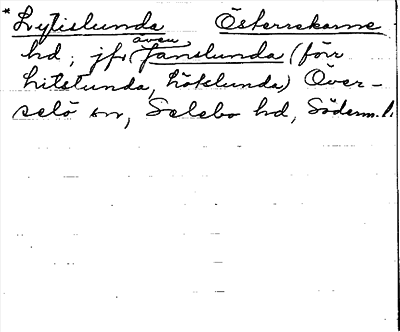 *Lytislunda Österrekarne
hd; jfr även Janslunda (förr
hitslunda, Lötslunda) Över-
selö sn, Selebo hd, Söderm. l.